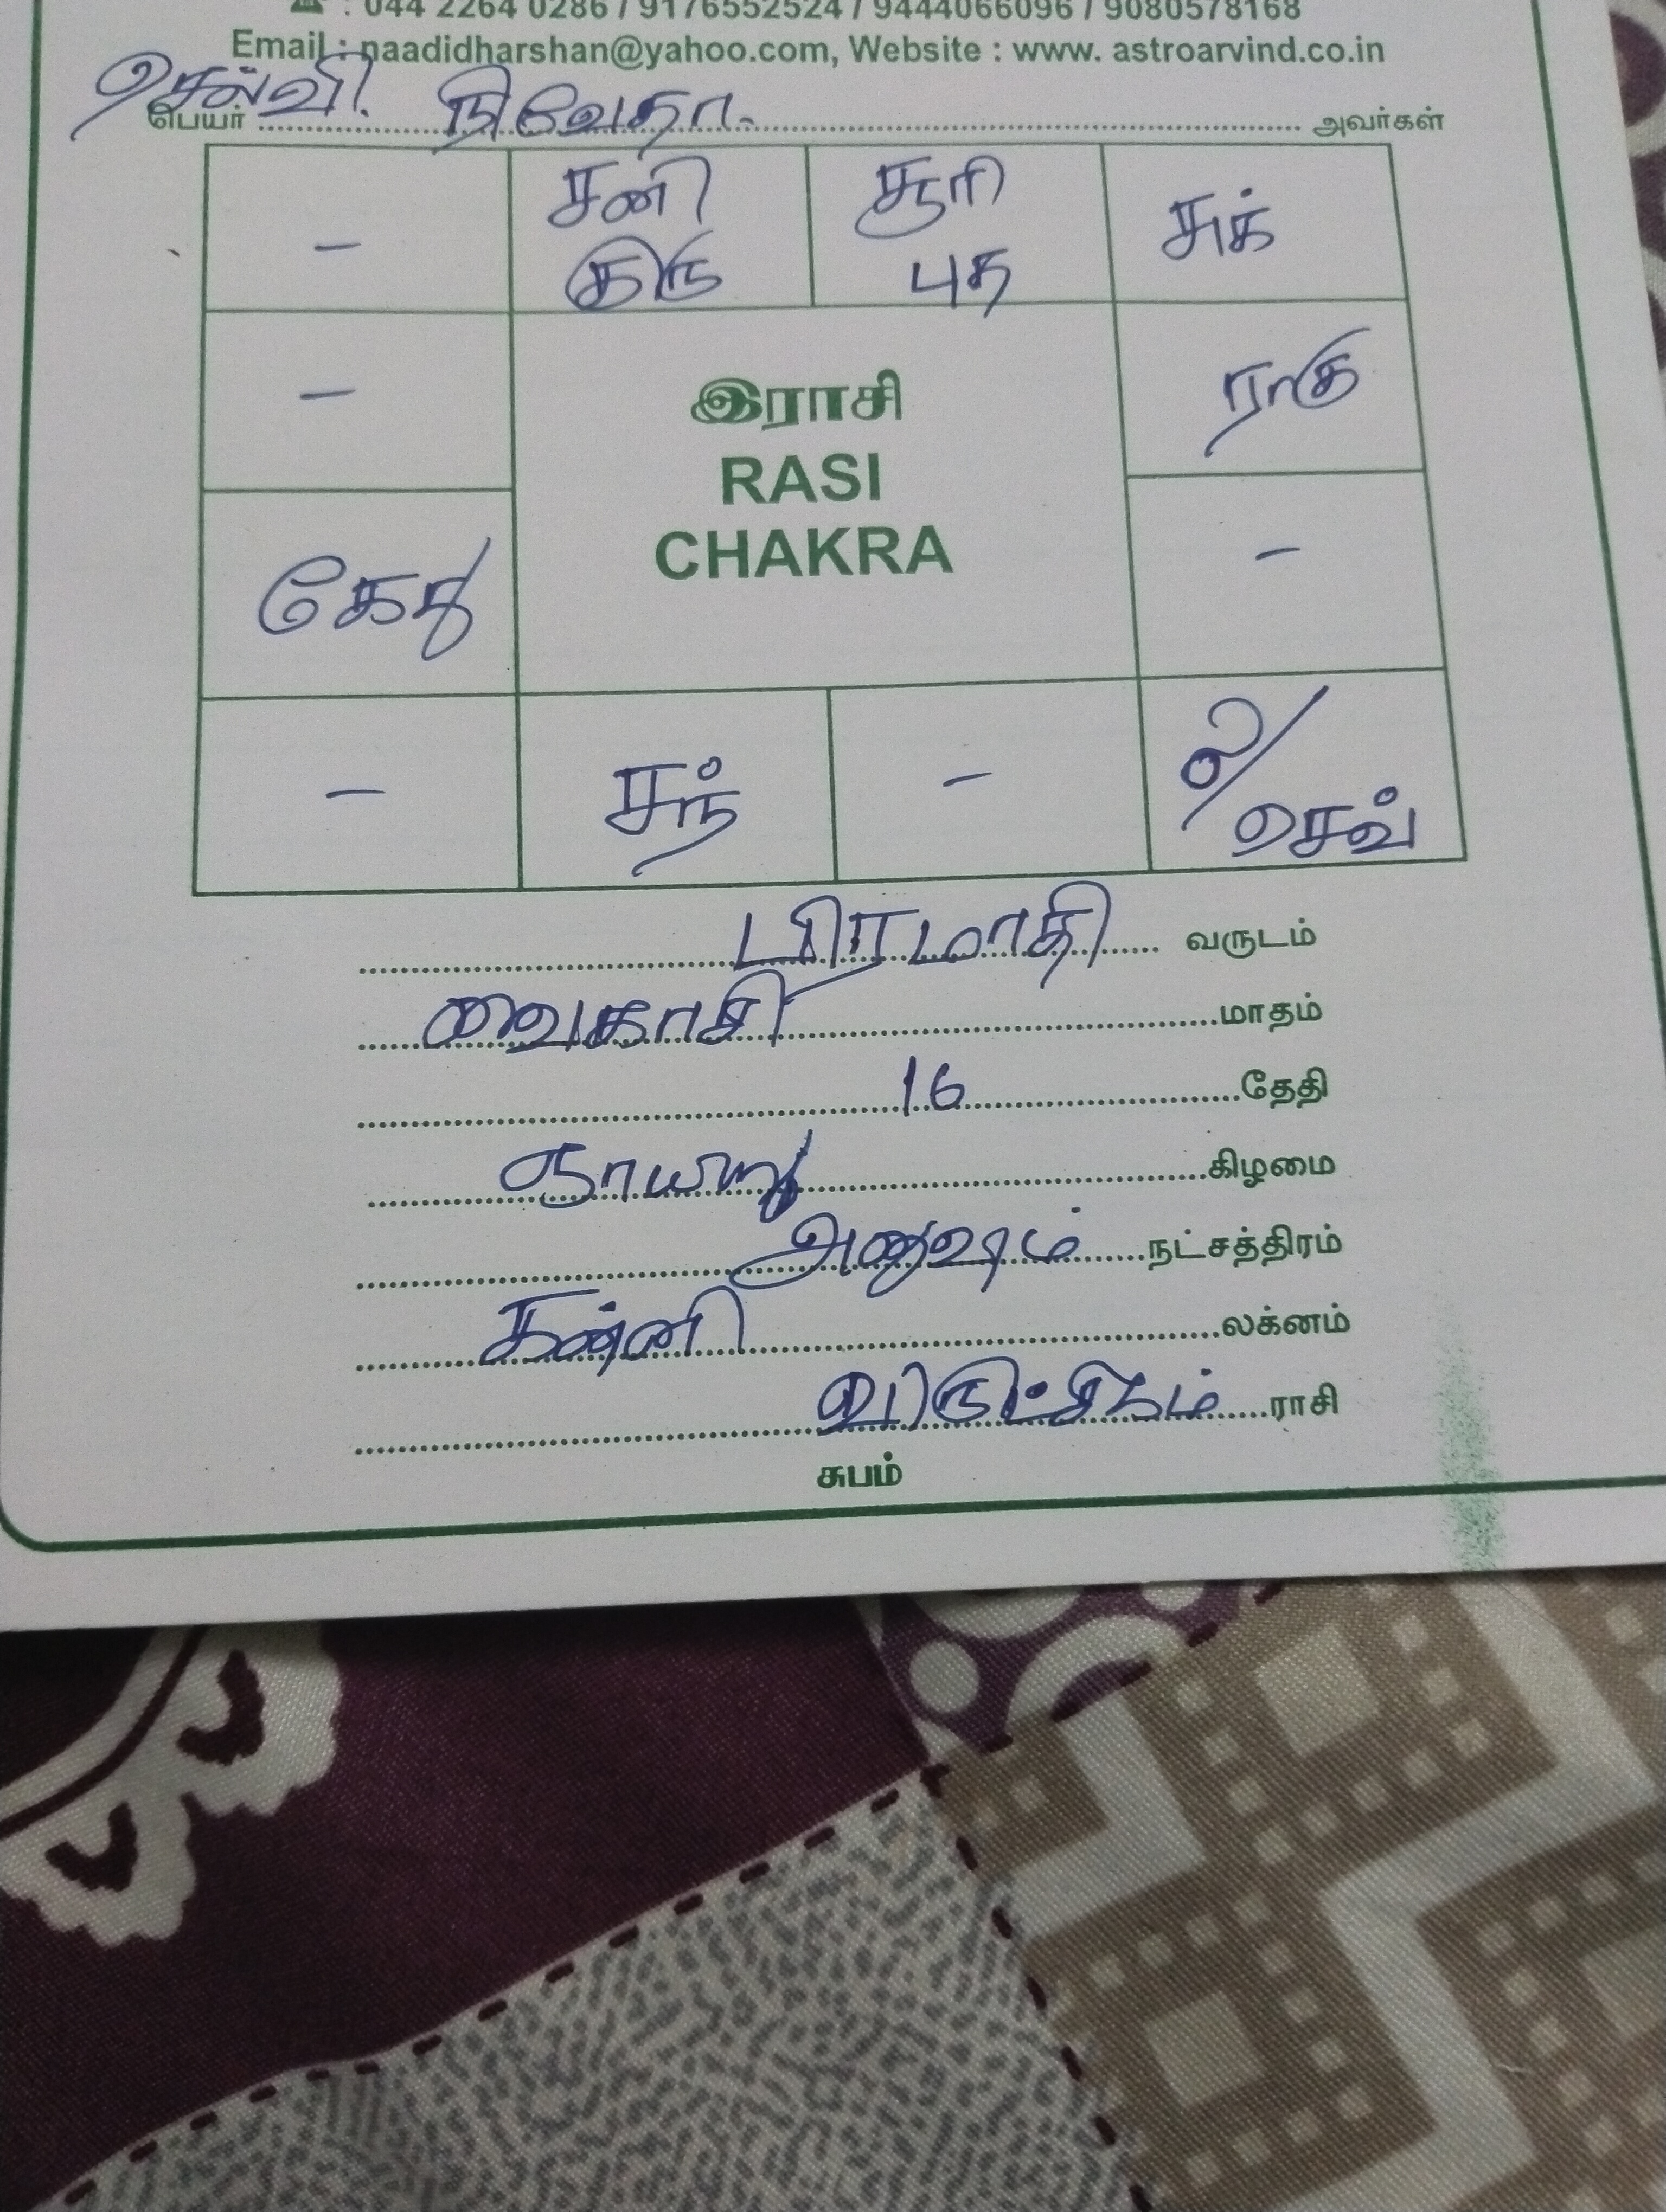 : 044 2264 0286 / 9176552524 / 9444066096 / 9080578168
Email : naadidharshan@yahoo.com, Website : www. astroarvind.co.in
செல்வி. நிவேதா.
பெயர் அவர்கள்
- சனி குரு சூரி புத சுக்
இராசி
RASI
CHAKRA
- ராகு
கேது -
- சந் - ல/ செவ்
பிரமாதி வருடம்
வைகாசி மாதம்
16 தேதி
ஞாயிறு கிழமை
அனுஷம் நட்சத்திரம்
கன்னி லக்னம்
விருட்சிகம் ராசி
சுபம்